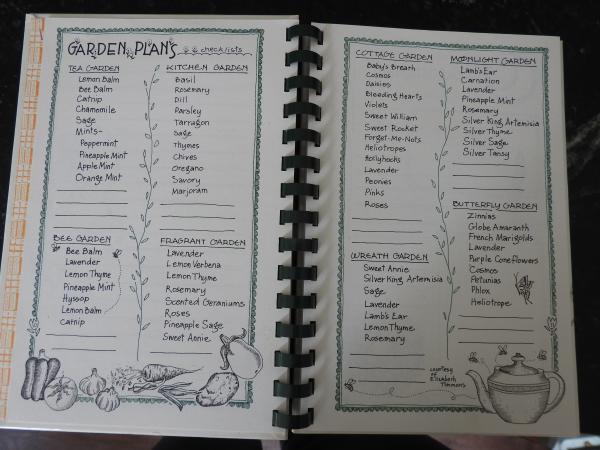 GARDEN PLANS checklists
TEA GARDEN
Lemon Balm
Bee Balm
Catnip
Chamomile
Sage
Mints-
Peppermint
Pineapple Mint
Apple Mint
Orange Mint
KITCHEN GARDEN
Basil
Rosemary
Dill
Parsley
Tarragon
Sage
Thymes
Chives
Oregano
Savory
Marjoram
BEE GARDEN
Bee Balm
Lavender
Lemon Thyme
Pineapple Mint
Hyssop
Lemon Balm
Catnip
FRAGRANT GARDEN
Lavender
Lemon Verbena
Lemon Thyme
Rosemary
Scented Geraniums
Roses
Pineapple Sage
Sweet Annie
COTTAGE GARDEN
Baby's Breath
Cosmos
Daisies
Bleeding Hearts
Violets
Sweet William
Sweet Rocket
Forget-Me-Nots
Heliotropes
Hollyhocks
Lavender
Peonies
Pinks
Roses
WREATH GARDEN
Sweet Annie
Silver King Artemisia
Sage
Lavender
Lamb's Ear
Lemon Thyme
Rosemary
MOONLIGHT GARDEN
Lamb's Ear
Carnation
Lavender
Pineapple Mint
Rosemary
Silver King Artemisia
Silver Thyme
Silver Sage
Silver Tansy
BUTTERFLY GARDEN
Zinnias
Globe Amaranth
French Marigolds
Lavender
Purple Coneflowers
Cosmos
Petunias
Phlox
Heliotrope
courtesy
of
Elizabeth
Timmons